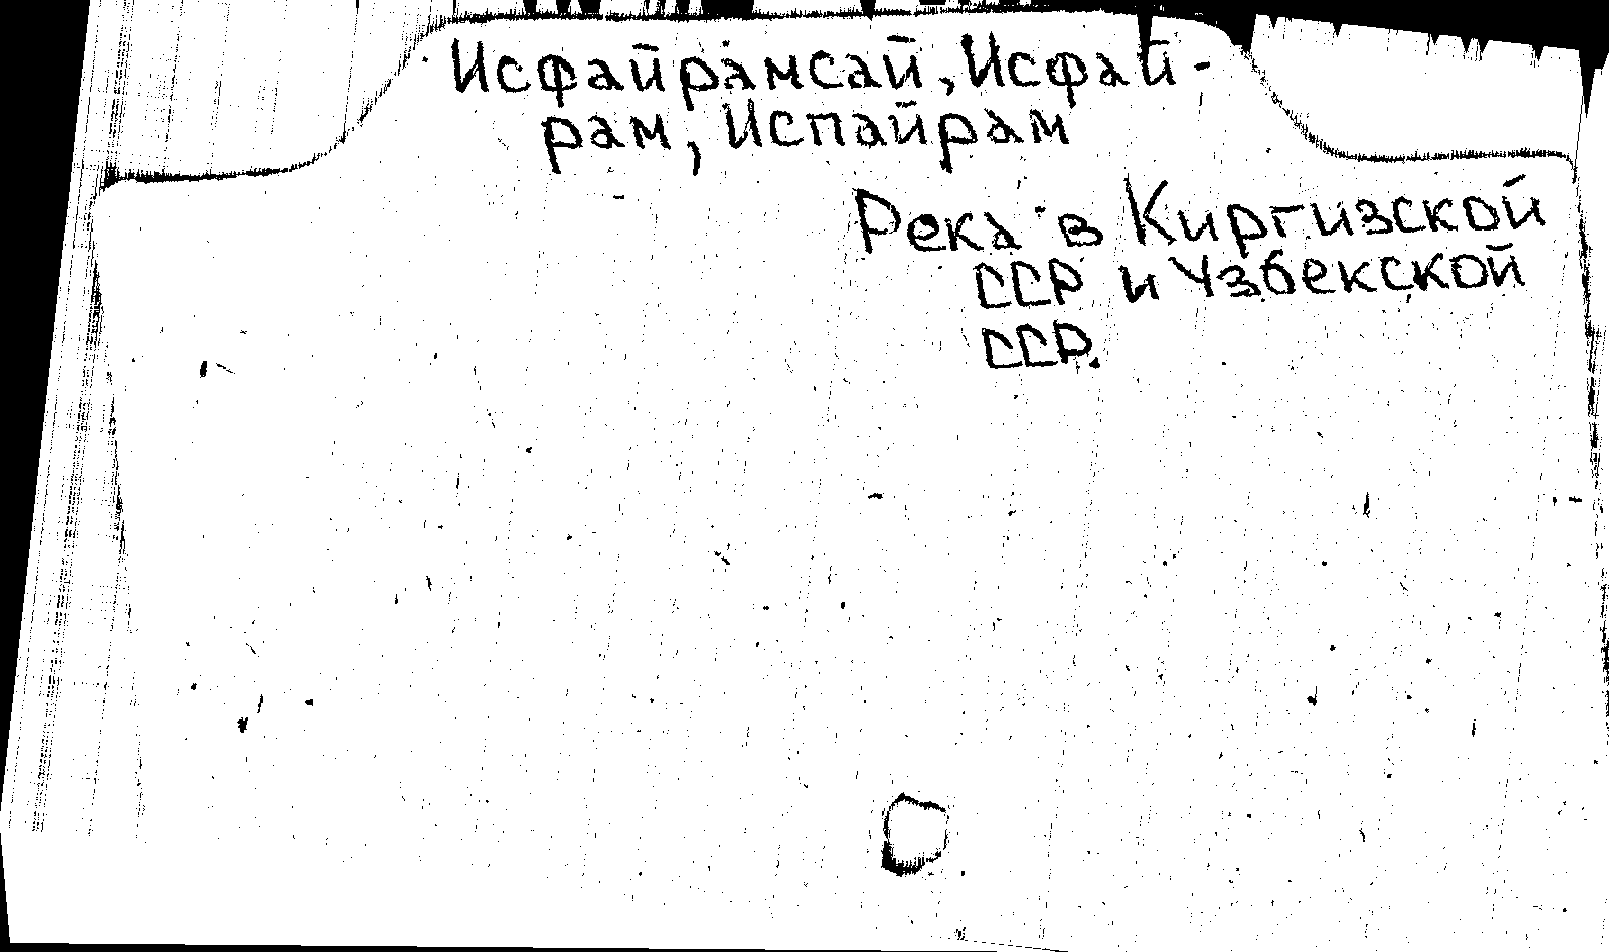 Исфайрамсай, Исфай-
рам, Испайрам
Река в Киргизской
ССР и Узбекской
ССР.